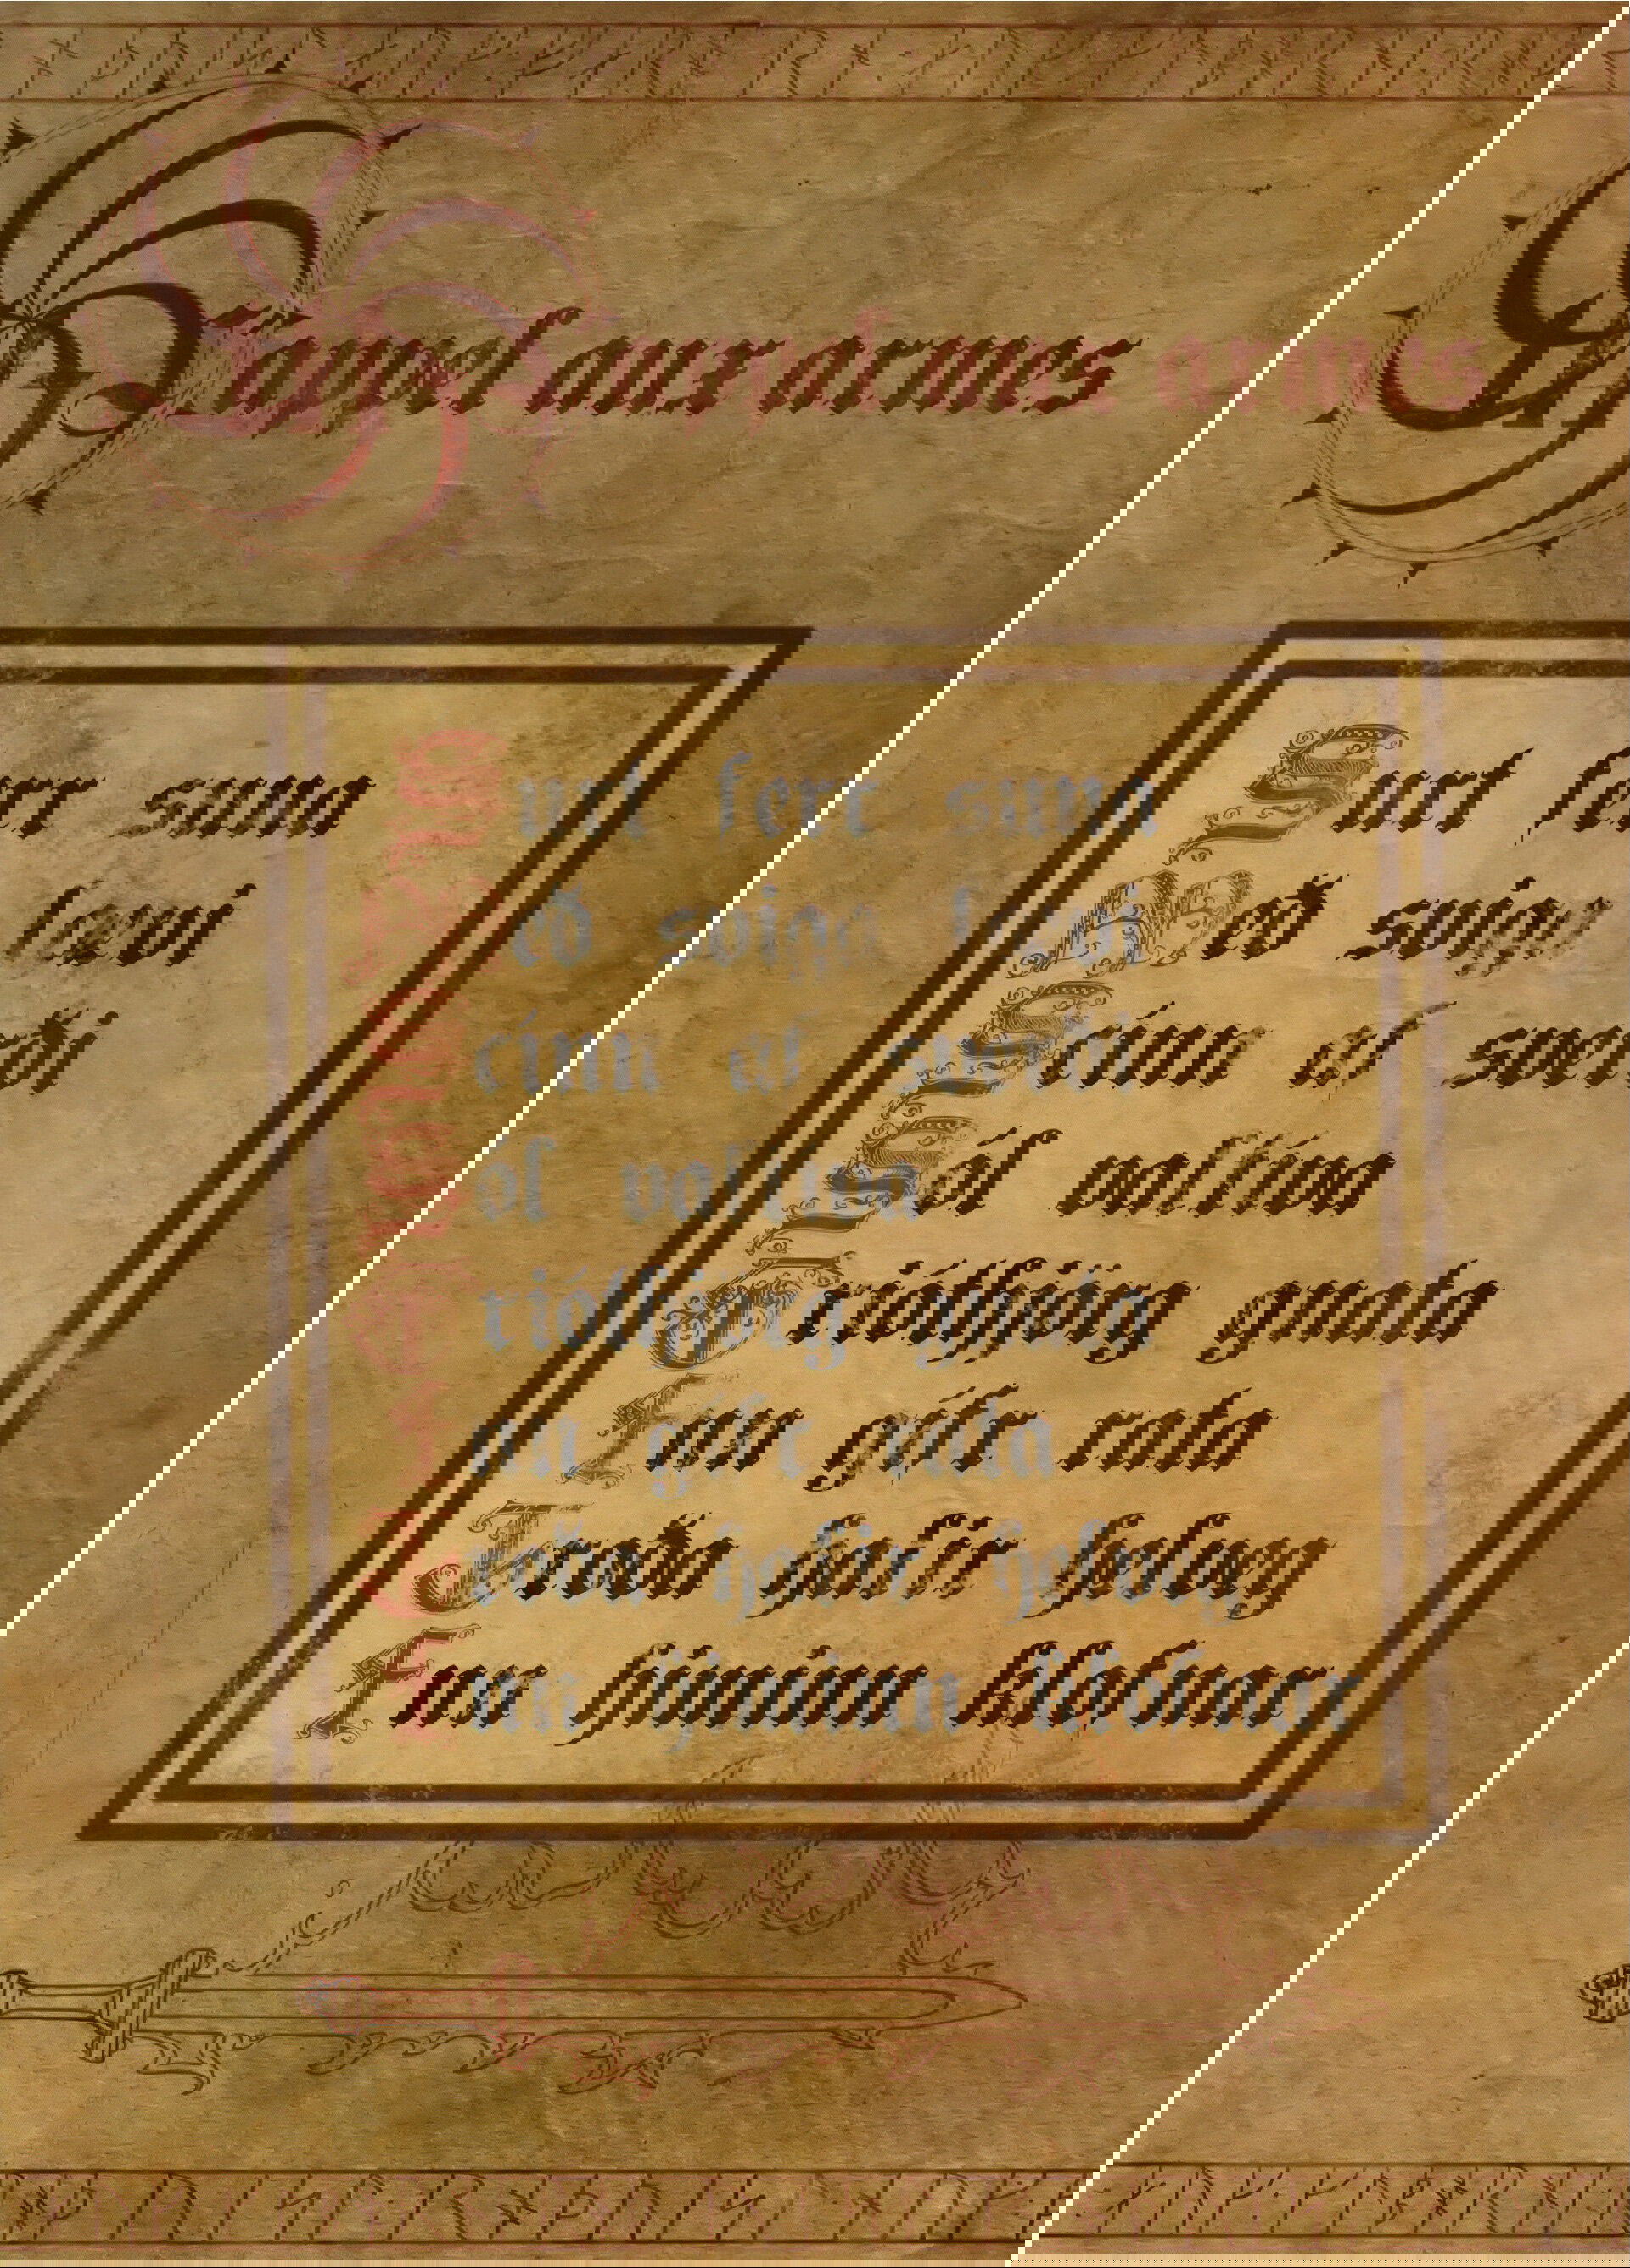 L'appel aux armes
Surt ferr sunna
Með sviga lævi
Scínn af sverði
Sól valtíva
Griótbjörg gnata
Enn gífr rata
Troða halir helveg
Enn himinn klofnar